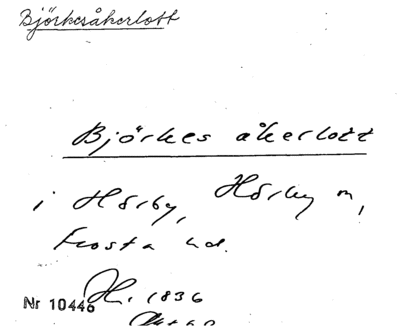 Björkesåkerlott
Björkes åkerlott
i Hörby, Hörby m,
Frosta hd.
H. 1836
Nr 10446